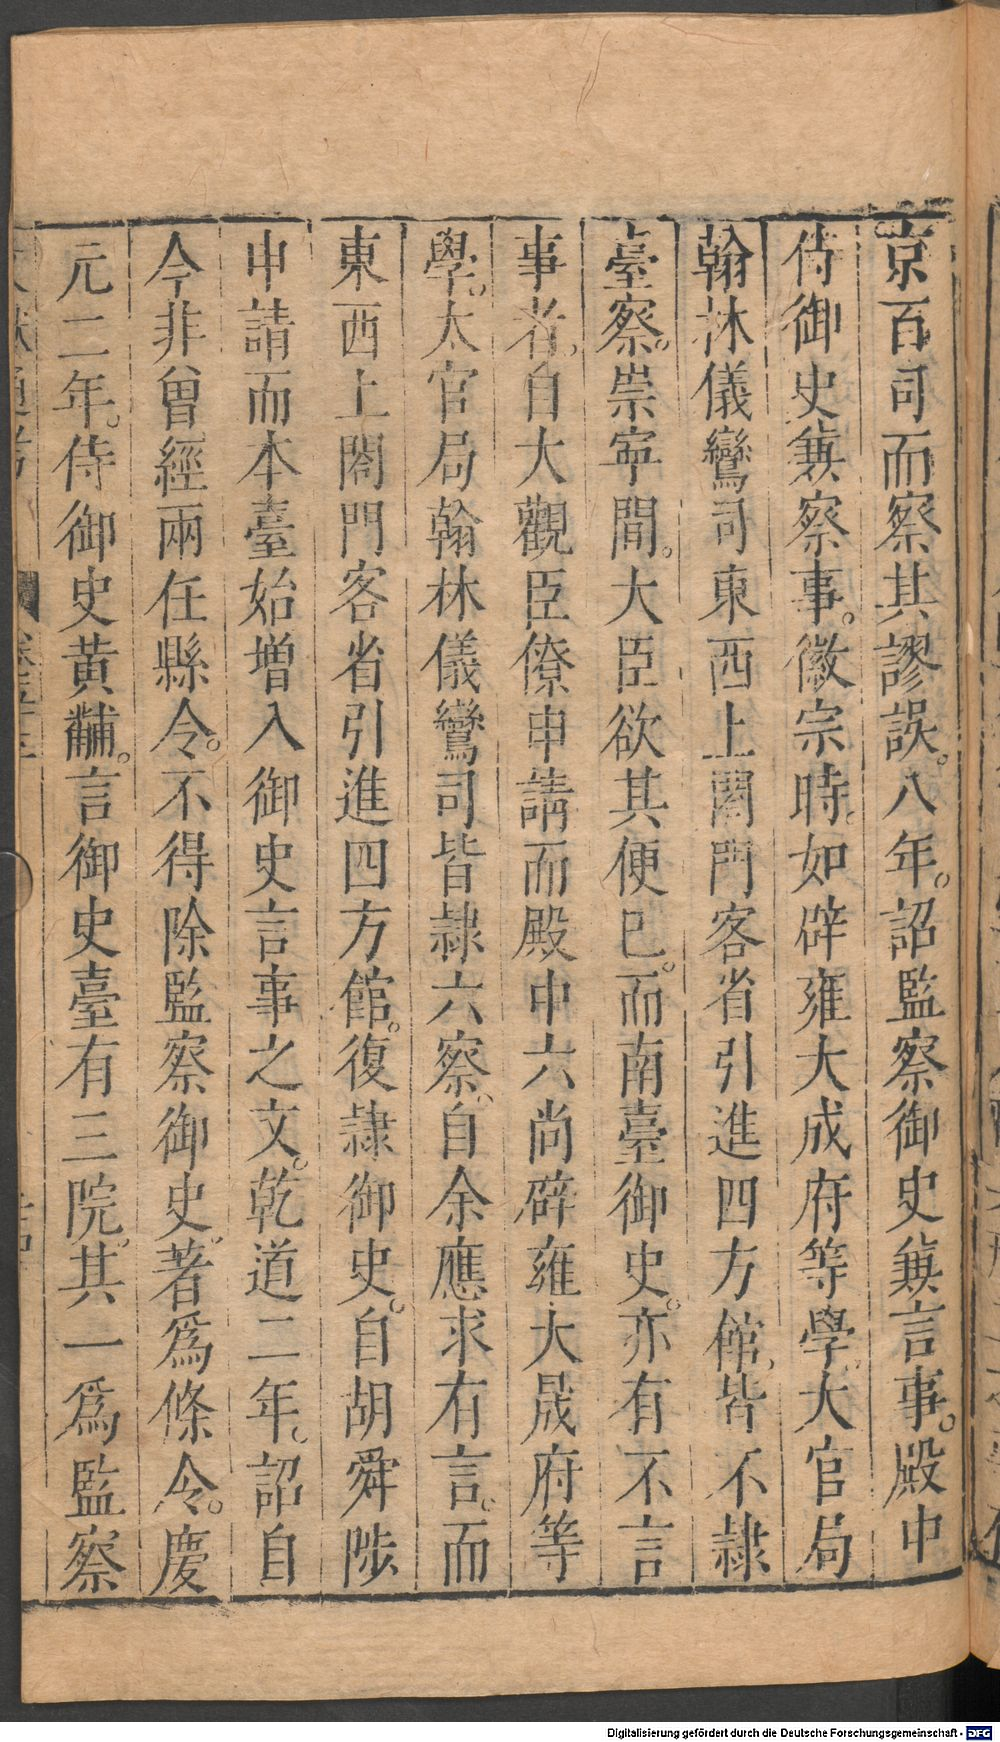 京百司而察其謬誤。八年。詔監察御史兼言事。殿中
侍御史兼察事。徽宗時。如辟雍大成府等學。大官局
翰林儀鸞司東西上閣門客省引進四方館。皆不隷
臺察。崇寧間。大臣欲其便已。而南臺御史。亦有不言
事者。自大觀臣僚申請而殿中六尚辟雍大晟府等
學。太官局翰林儀鸞司皆隷六察。自余應求有言。而
東西上閣門客省引進四方館。復隷御史。自胡舜陟
申請而本臺始增入御史言事之文。乾道二年。詔自
今非曾經兩任縣令。不得除監察御史。著爲條令。慶
元二年。侍御史黄黼。言御史臺有三院。其一爲監察
通考
Digitalisierung gefördert durch die Deutsche Forschungsgemeinschaft - DFG